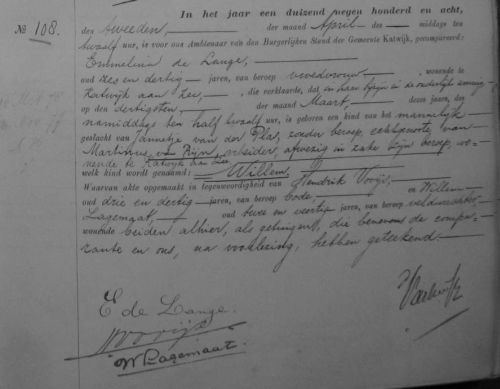 In het jaar een duizend negen honderd en acht,
No 108.
den tweeden, der maand April des middags ten
twaalf uur, is voor ons Ambtenaar van den Burgerlijken Stand der Gemeente Katwijk, gecompareerd:
Emmelina de Lange,
oud zes en dertig jaren, van beroep vroedvrouw, wonende te
Katwijk aan Zee, die verklaarde, dat in haar bijzijn in de ouderlijke woning
op den dertigsten der maand Maart, dezes jaars, des
namiddags ten half twaalf uur, is geboren een kind van het mannelijk
geslacht van Jannetje van der Plas, zonder beroep, echtgenote van
Martinus van Rijn, arbeider, afwezig in zake zijn beroep, wo-
nende te Katwijk aan Zee,
welk kind wordt genaamd: Willem
Waarvan akte opgemaakt in tegenwoordigheid van Hendrik Vooijs,
oud drie en dertig jaren, van beroep bode, en Willem
Lagemaat, oud twee en veertig jaren, van beroep veldwachter,
wonende beiden alhier, als getuigen, die benevens de compa-
rante en ons, na voorlezing, hebben geteekend.
E de Lange.
HVooijs
W Lagemaat.